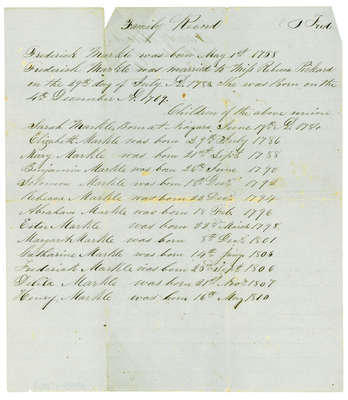 Family Record
Frederick Markle was born May 1st 1758
Frederick Markle was married to Miss Rebecca Pickard
on the 29th day of July A.D. 1783 She was Born on the
4th December A. 1769.
Children of the above union
Sarah Markle, Born at Niagara June 19th D. 1784
Elizabeth Markle was born 29th July 1786
Mary Markle was born 21st Sept 1788
Benjamin Markle was born 26th June 1790
Solomon Markle was born 18th Decr 1792
Rebecca Markle was born 25 Decr 1794
Abraham Markle was born 18 Feb 1796
Ester Markle was born 22nd March 1798
Margaret Markle was born 8th Decr 1801
Catharine Markle was born 14th Jany 1804
Frederick Markle was born 25th Sept 1806
Markle was born 21st Novr 1807
Henry Markle was born 16th May 1810